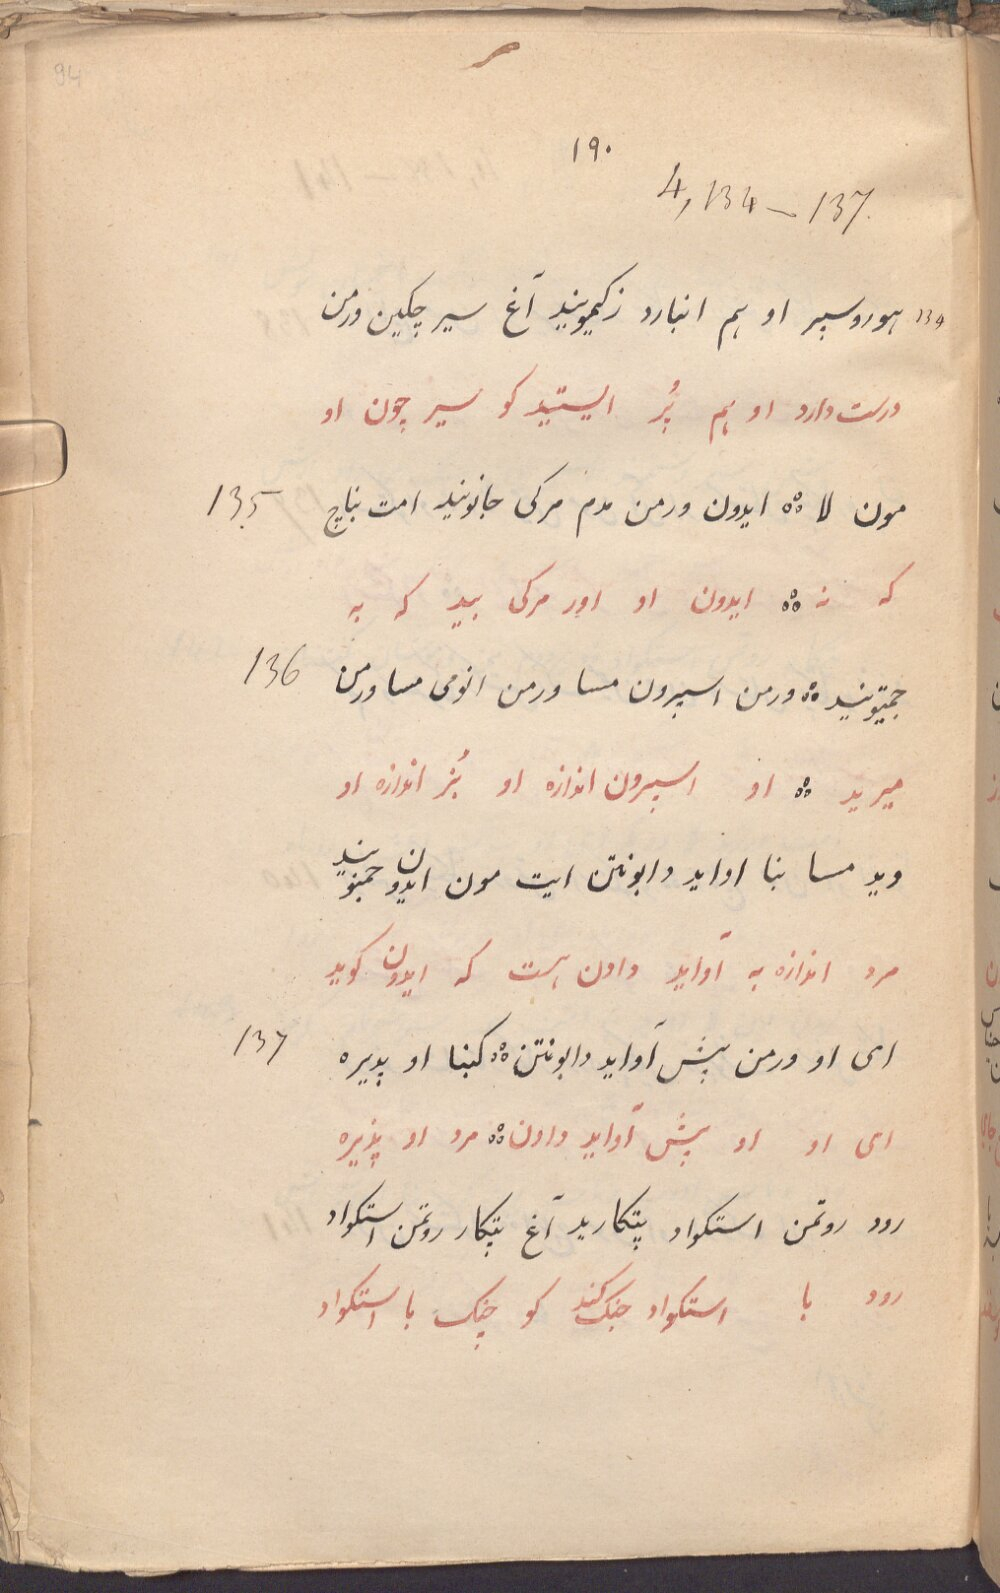 94
۱۹۰
4,134–137.
134 هوروسپر او هم انبارد زکیمویند آغ سیر چکین ورمن
درست دارد او هم پُر ایستید کو سیر چون او
مون لا ஃ ایدون ورمن مدم مرکی جانونید امت بناچ 135
که نه ஃ ایدون او اور مرکی بید که به
جمیتونید ஃ ورمن اسپرون مسا ورمن انومی مسا ورمن 136
میرید ஃ او اسپرون اندازه او بُز اندازه او
وید مسا بنا اواید دابونتن ایت مون ایدون جمنونید
مرد اندازه به آواید دادن هست که ایدون کوید
امی او ورمن پیش آواید دابونتن ஃ کبنا او پدیره 137
امی او او پیش آواید دادن ஃ مرد او پذیره
رود روتمن استکواد پتکارید آغ پتکار روتمن استکواد
رود با استکواد جنک کند کو جنک با استکواد